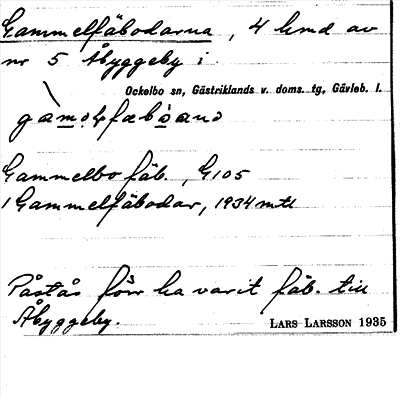 Gammelfäbodarna, 4 kmd av
nr 5 Åbyggeby i
Ockelbo sn, Gästriklands v. doms. tg, Gävleb. l.
Gammelbo fäb., G105
1 Gammelfäbodar, 1934 mtl
Påstås förr ha varit fäb. till
Åbyggeby.
LARS LARSSON 1935